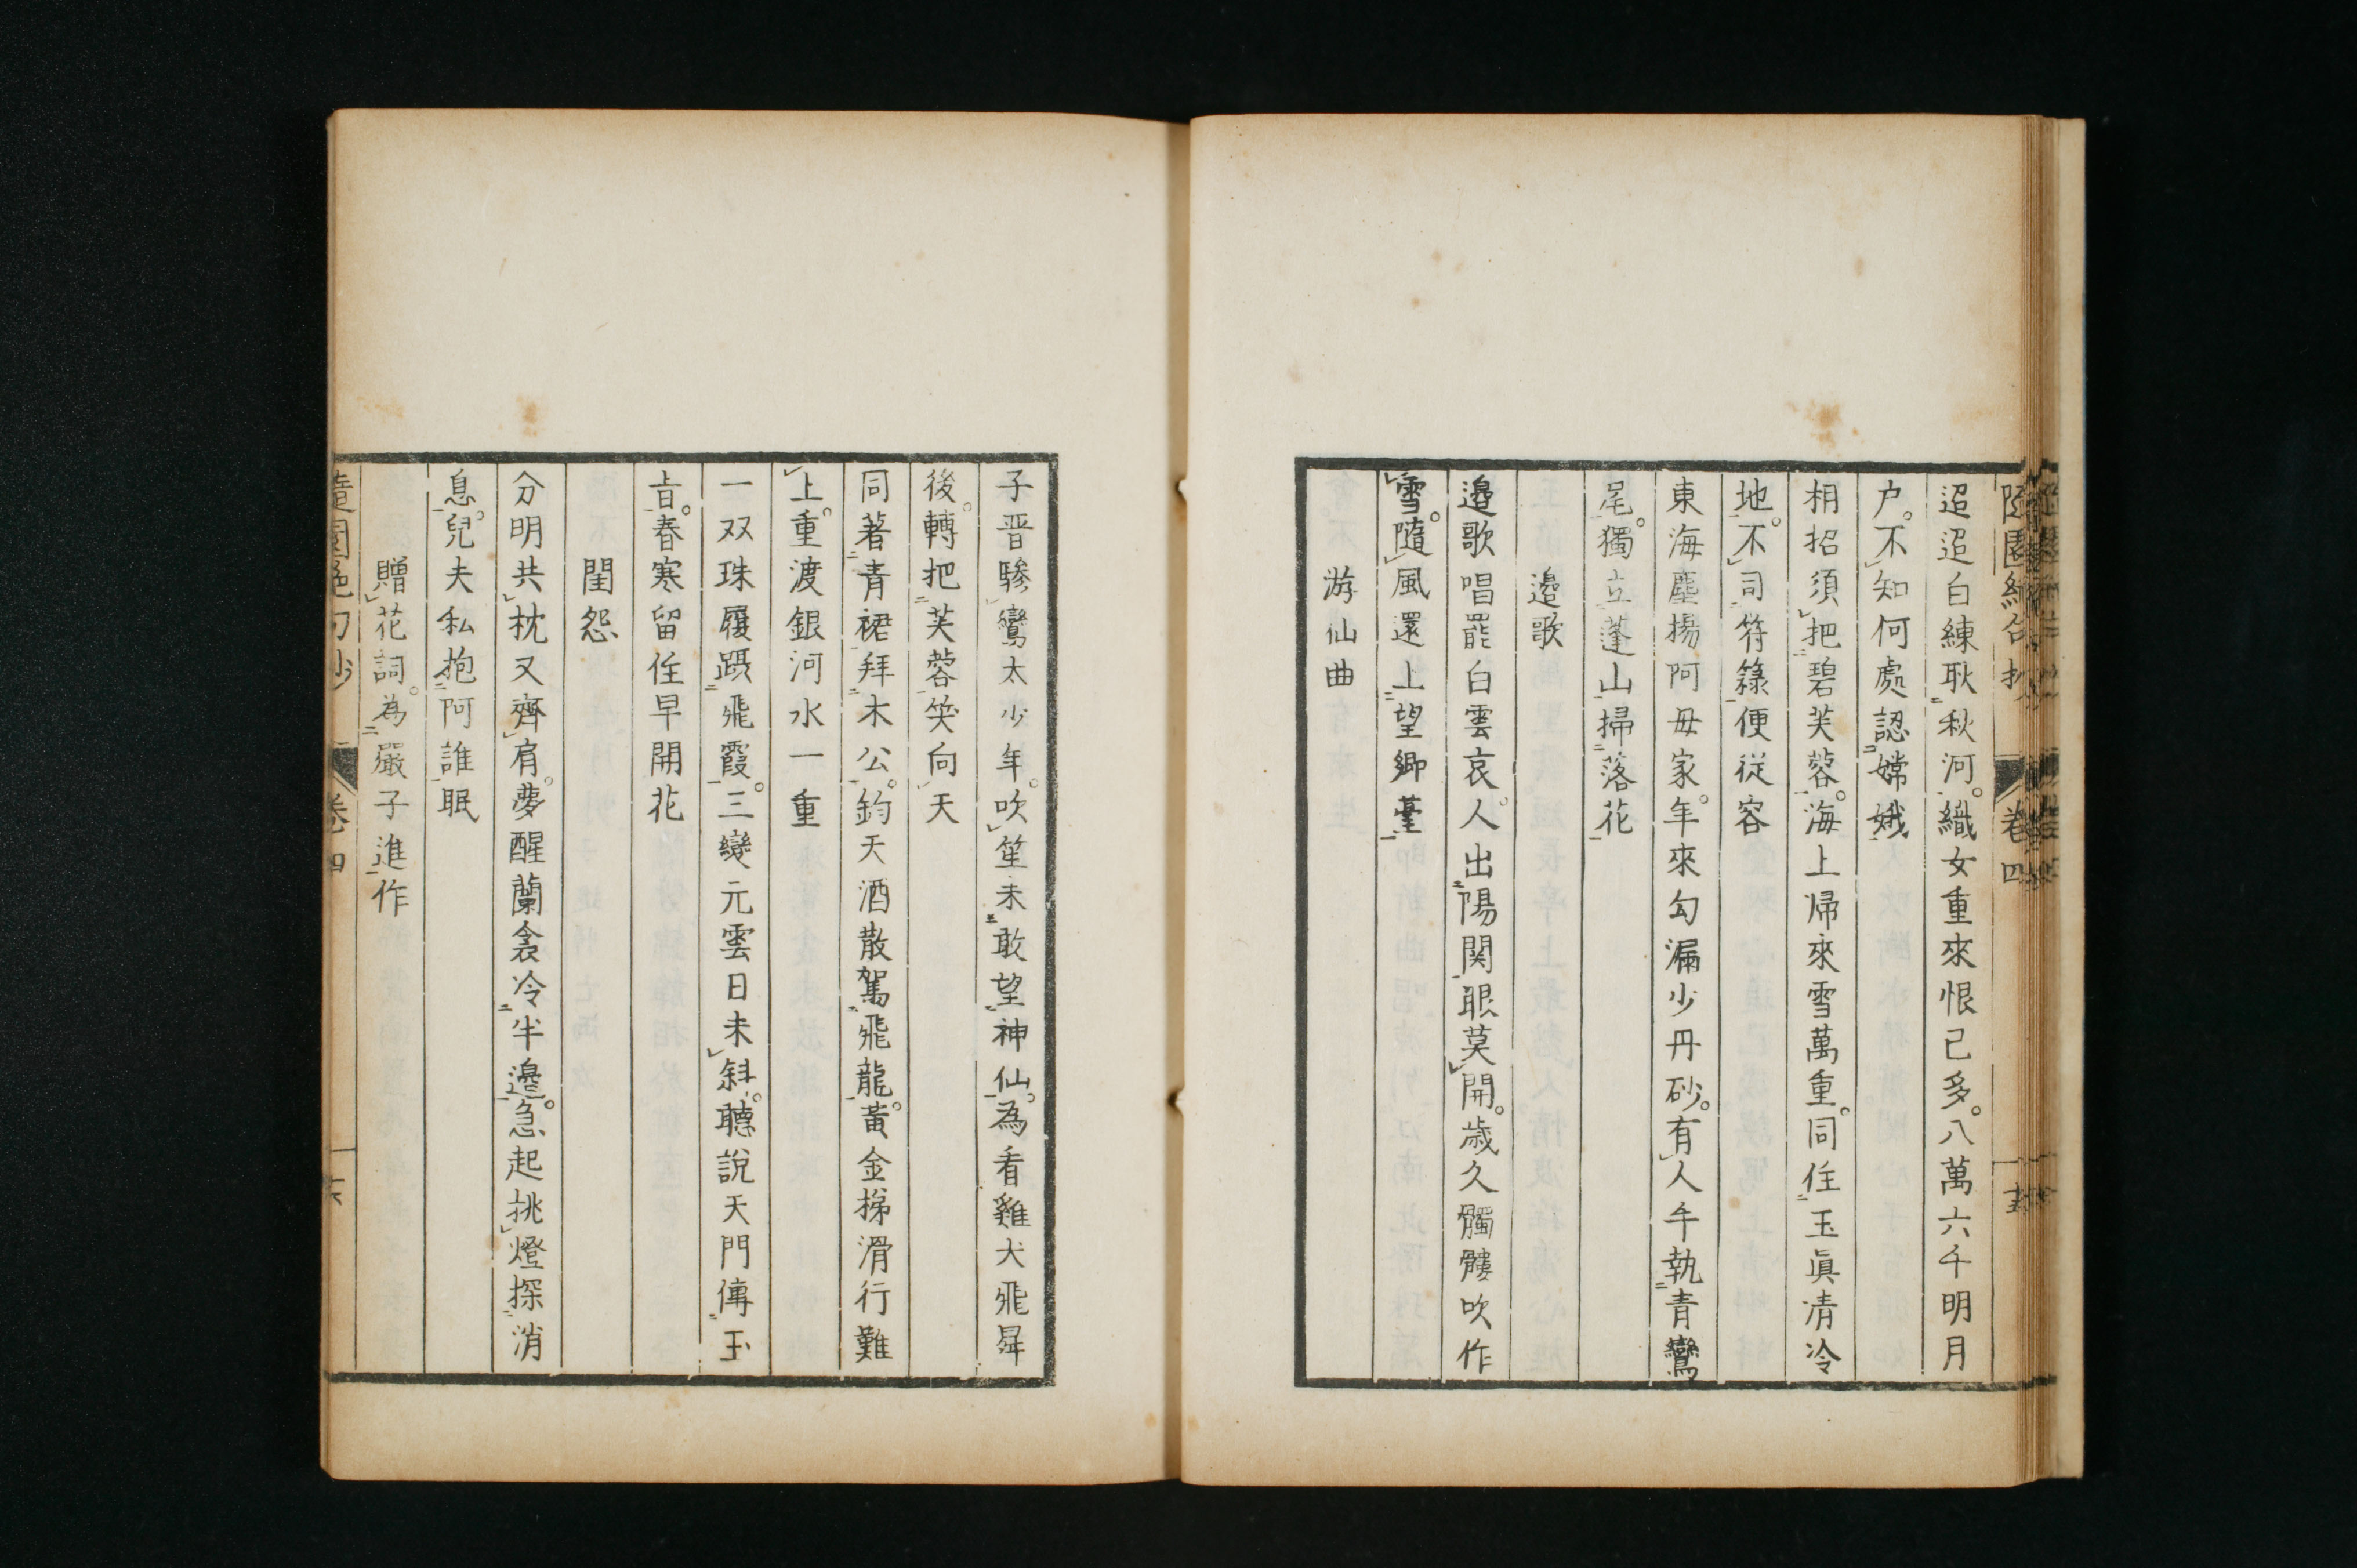 迢迢白練耿秋河。織女重來恨已多。八萬六千明月
户。不知何處認嫦娥
相招須把碧芙蓉。海上帰來雪萬重。同住玉眞清冷
地。不司符籙便從容
東海塵揚阿毋家。年來勾漏少丹砂。有人手執青鸞
尾。獨立蓬山掃落花
邉歌
邉歌唱罷白雲哀。人出陽関眼莫開。歳久髑髏吹作
雪。隨風還上望鄉臺
游仙曲
子晋驂鸞太少年。吹笙未敢望神仙。為看雞犬飛昇
後。轉把芙蓉笑向天
同著青裙拜木公。鈞天酒散駕飛龍。黃金梯滑行難
上。重渡銀河水一重
一双珠履躡飛霞。三變元雲日未斜。聽說天門傳玉
旨。春寒留住早開花
閨怨
分明共枕又齊肩。夢醒蘭衾冷半邉。急起挑燈探消
息。兒夫私抱阿誰眠
贈花詞。為嚴子進作
卷四